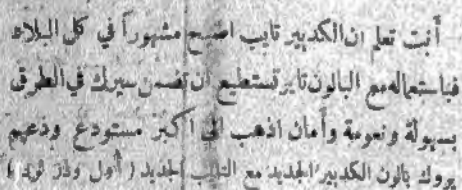 أنت تعلم ان الكدبير تايب اصبح مشهوراً في كل البلاد
فباستعماله مع البالون تاير تستطيع ان تضمن سيرك في الطرق
بسهولة ونعومة وأمان اذهب الى اكبر مستودع ودعهم
يروك بالون الكدبير الجديد مع التايب الجديد ( أول وذر